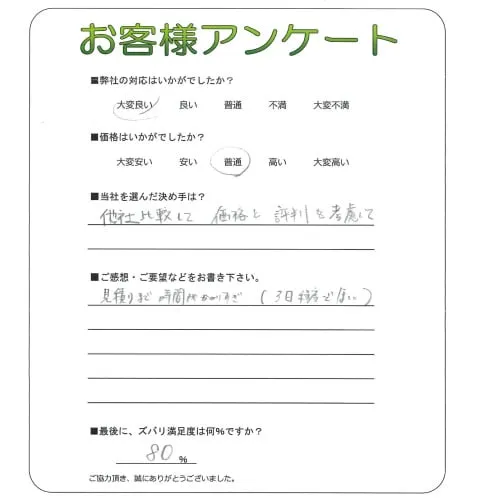 お客様アンケート
■弊社の対応はいかがでしたか？
大変良い 良い 普通 不満 大変不満
■価格はいかがでしたか？
大変安い 安い 普通 高い 大変高い
■当社を選んだ決め手は？
他社比較して 価格と 評判を考慮して
■ご感想・ご要望などをお書き下さい。
見積りまで 時間がかかりすぎ (3日程度でほしい)
■最後に、ズバリ満足度は何%ですか？
80 %
ご協力頂き、誠にありがとうございました。